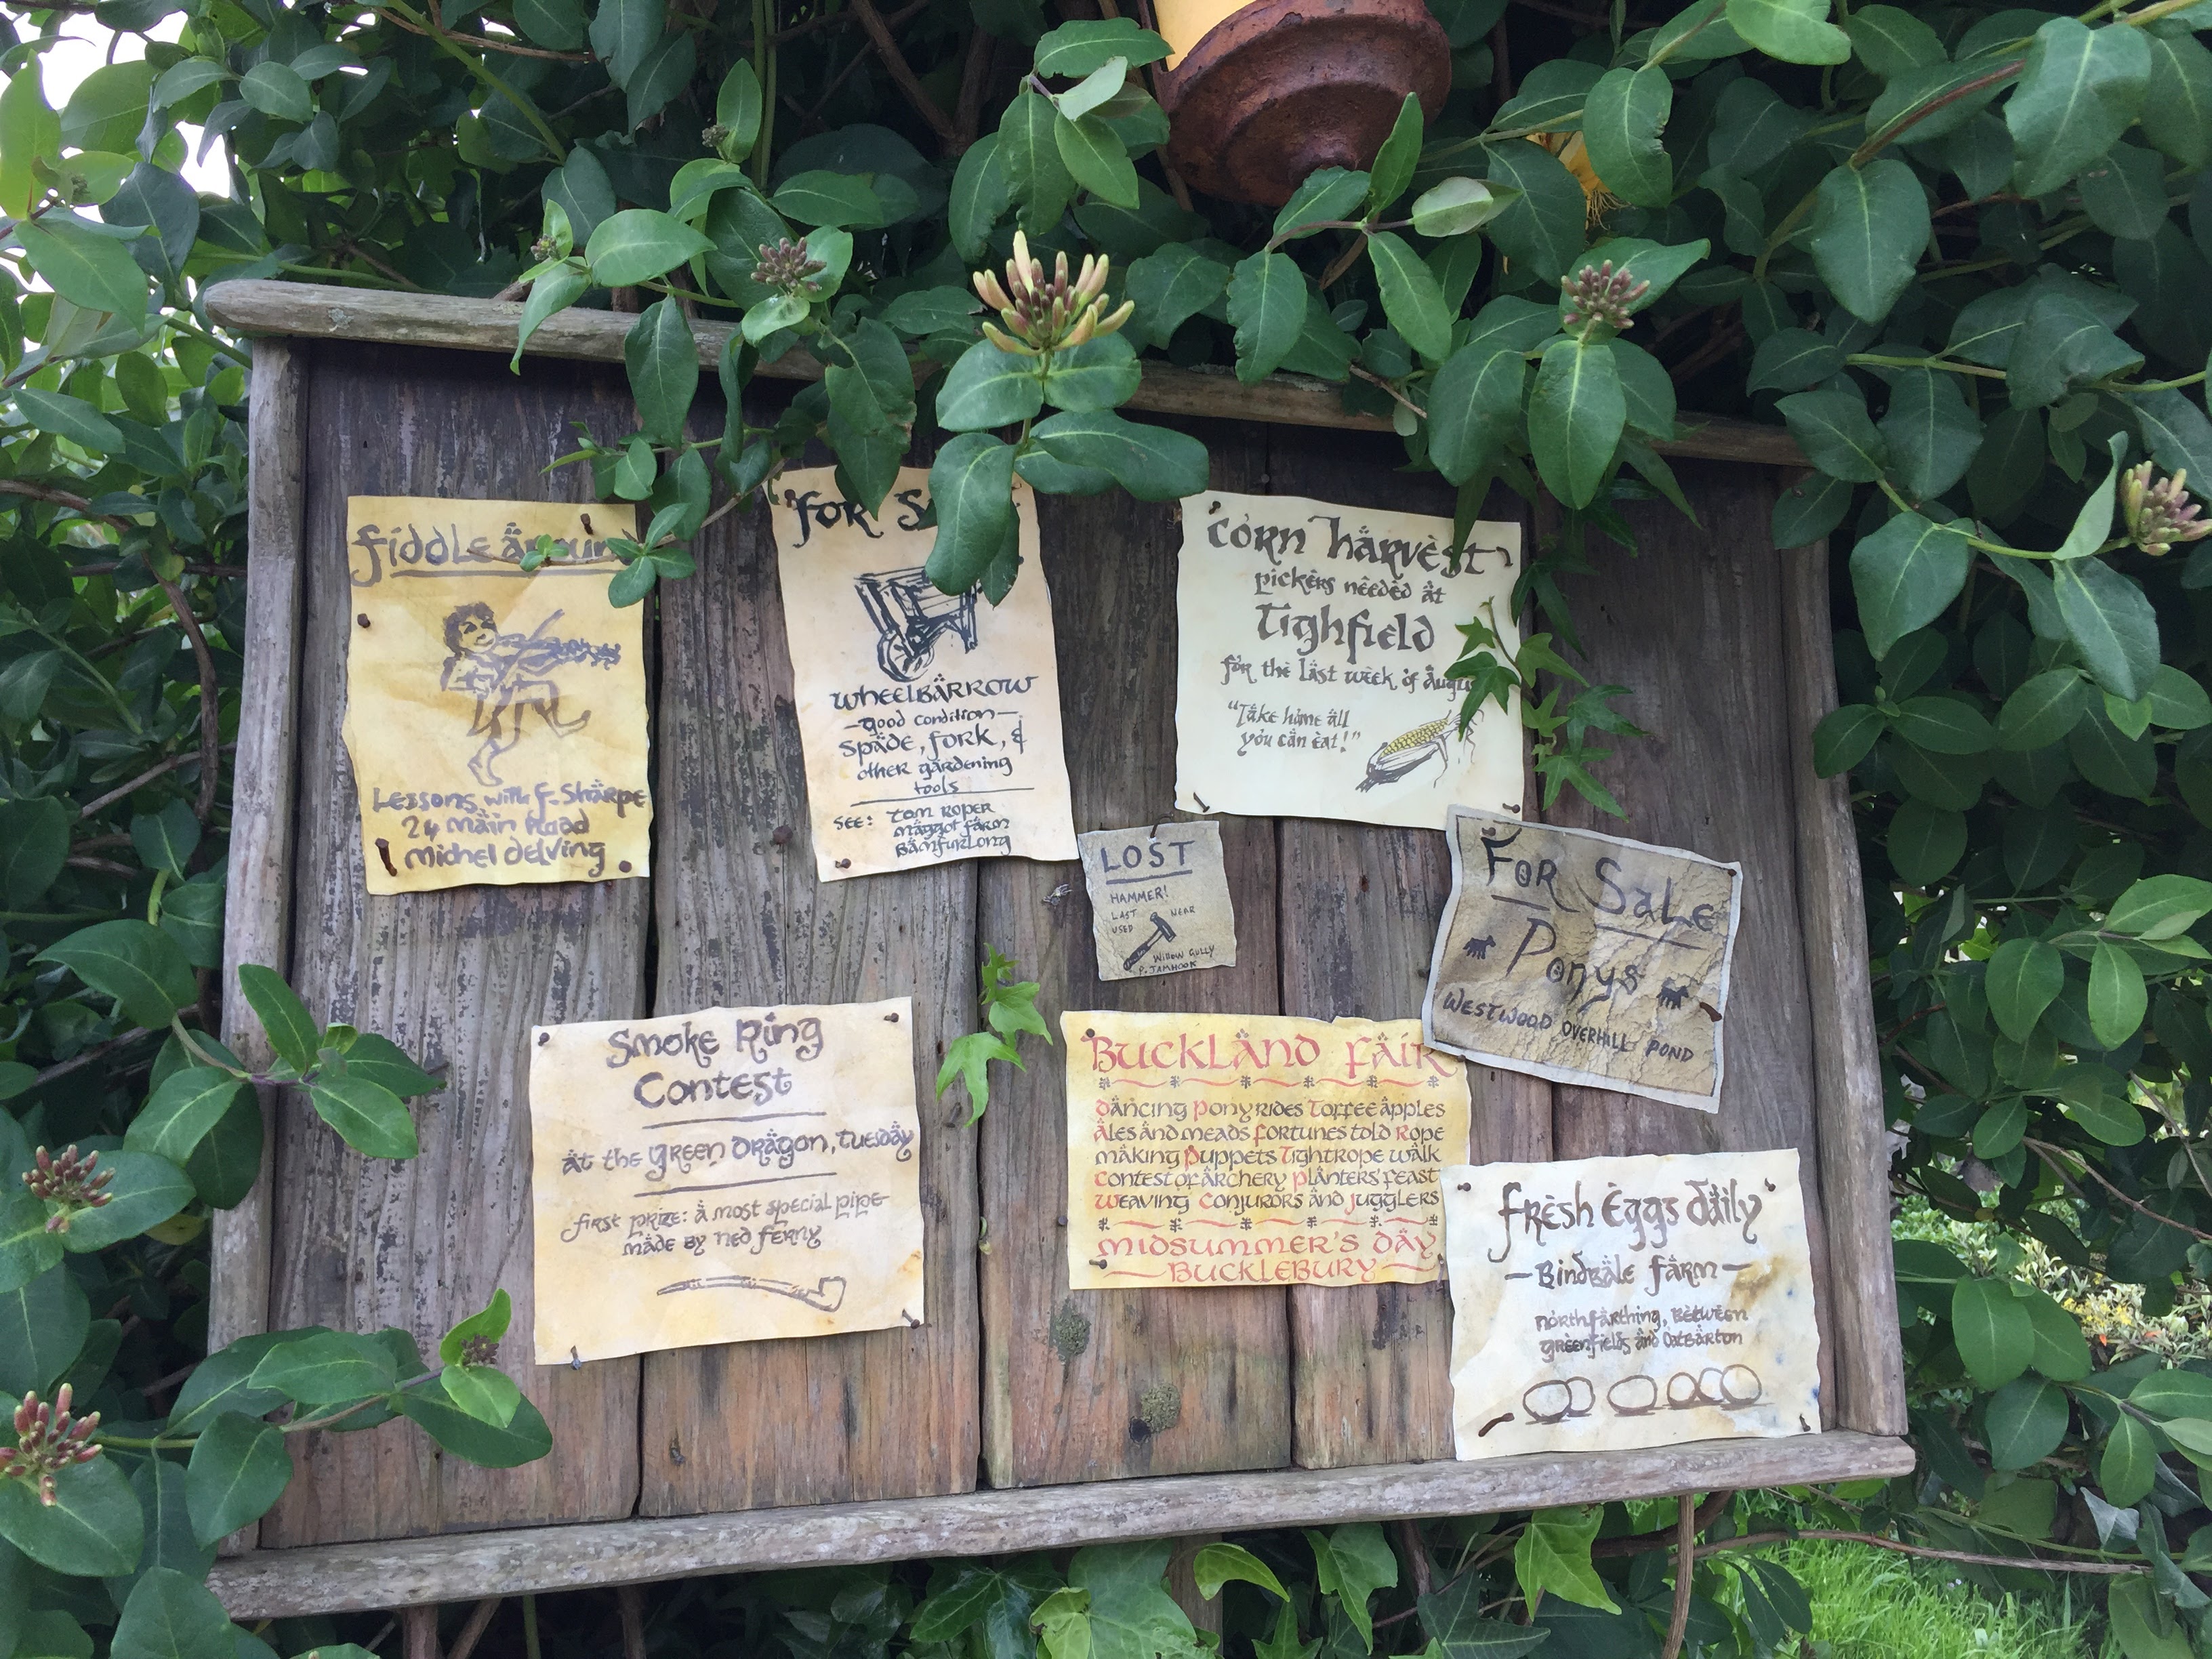 Fiddle Around
Lessons with F. Sharpe
24 Main Road
Michel Delving
For S
Wheelbarrow
- good condition -
Spade, Fork, &
other gardening
tools
See: Tom Roper
Maggot Farm
Bamfurlong
Corn Harvest
pickers needed at
Tighfield
for the last week of Augu
"Take home all
you can eat!"
LOST
HAMMER!
LAST NEAR
USED
WILLOW GULLY
P. JAMHOOK
FOR SaLe
Ponys
WESTWOOD OVERHILL POND
Smoke Ring
Contest
at the Green Dragon, Tuesday
first prize: a most special pipe
made by Ned Ferny
Buckland Fair
Dancing Pony rides Toffee apples
Ales and meads Fortunes told Rope
making Puppets Tightrope walk
Contest of Archery Planters' feast
Weaving Conjurors and Jugglers
Midsummer's Day
- Bucklebury -
Fresh Eggs daily
- Bindbale Farm -
Northfarthing, Between
Greenfields and Oatbarton